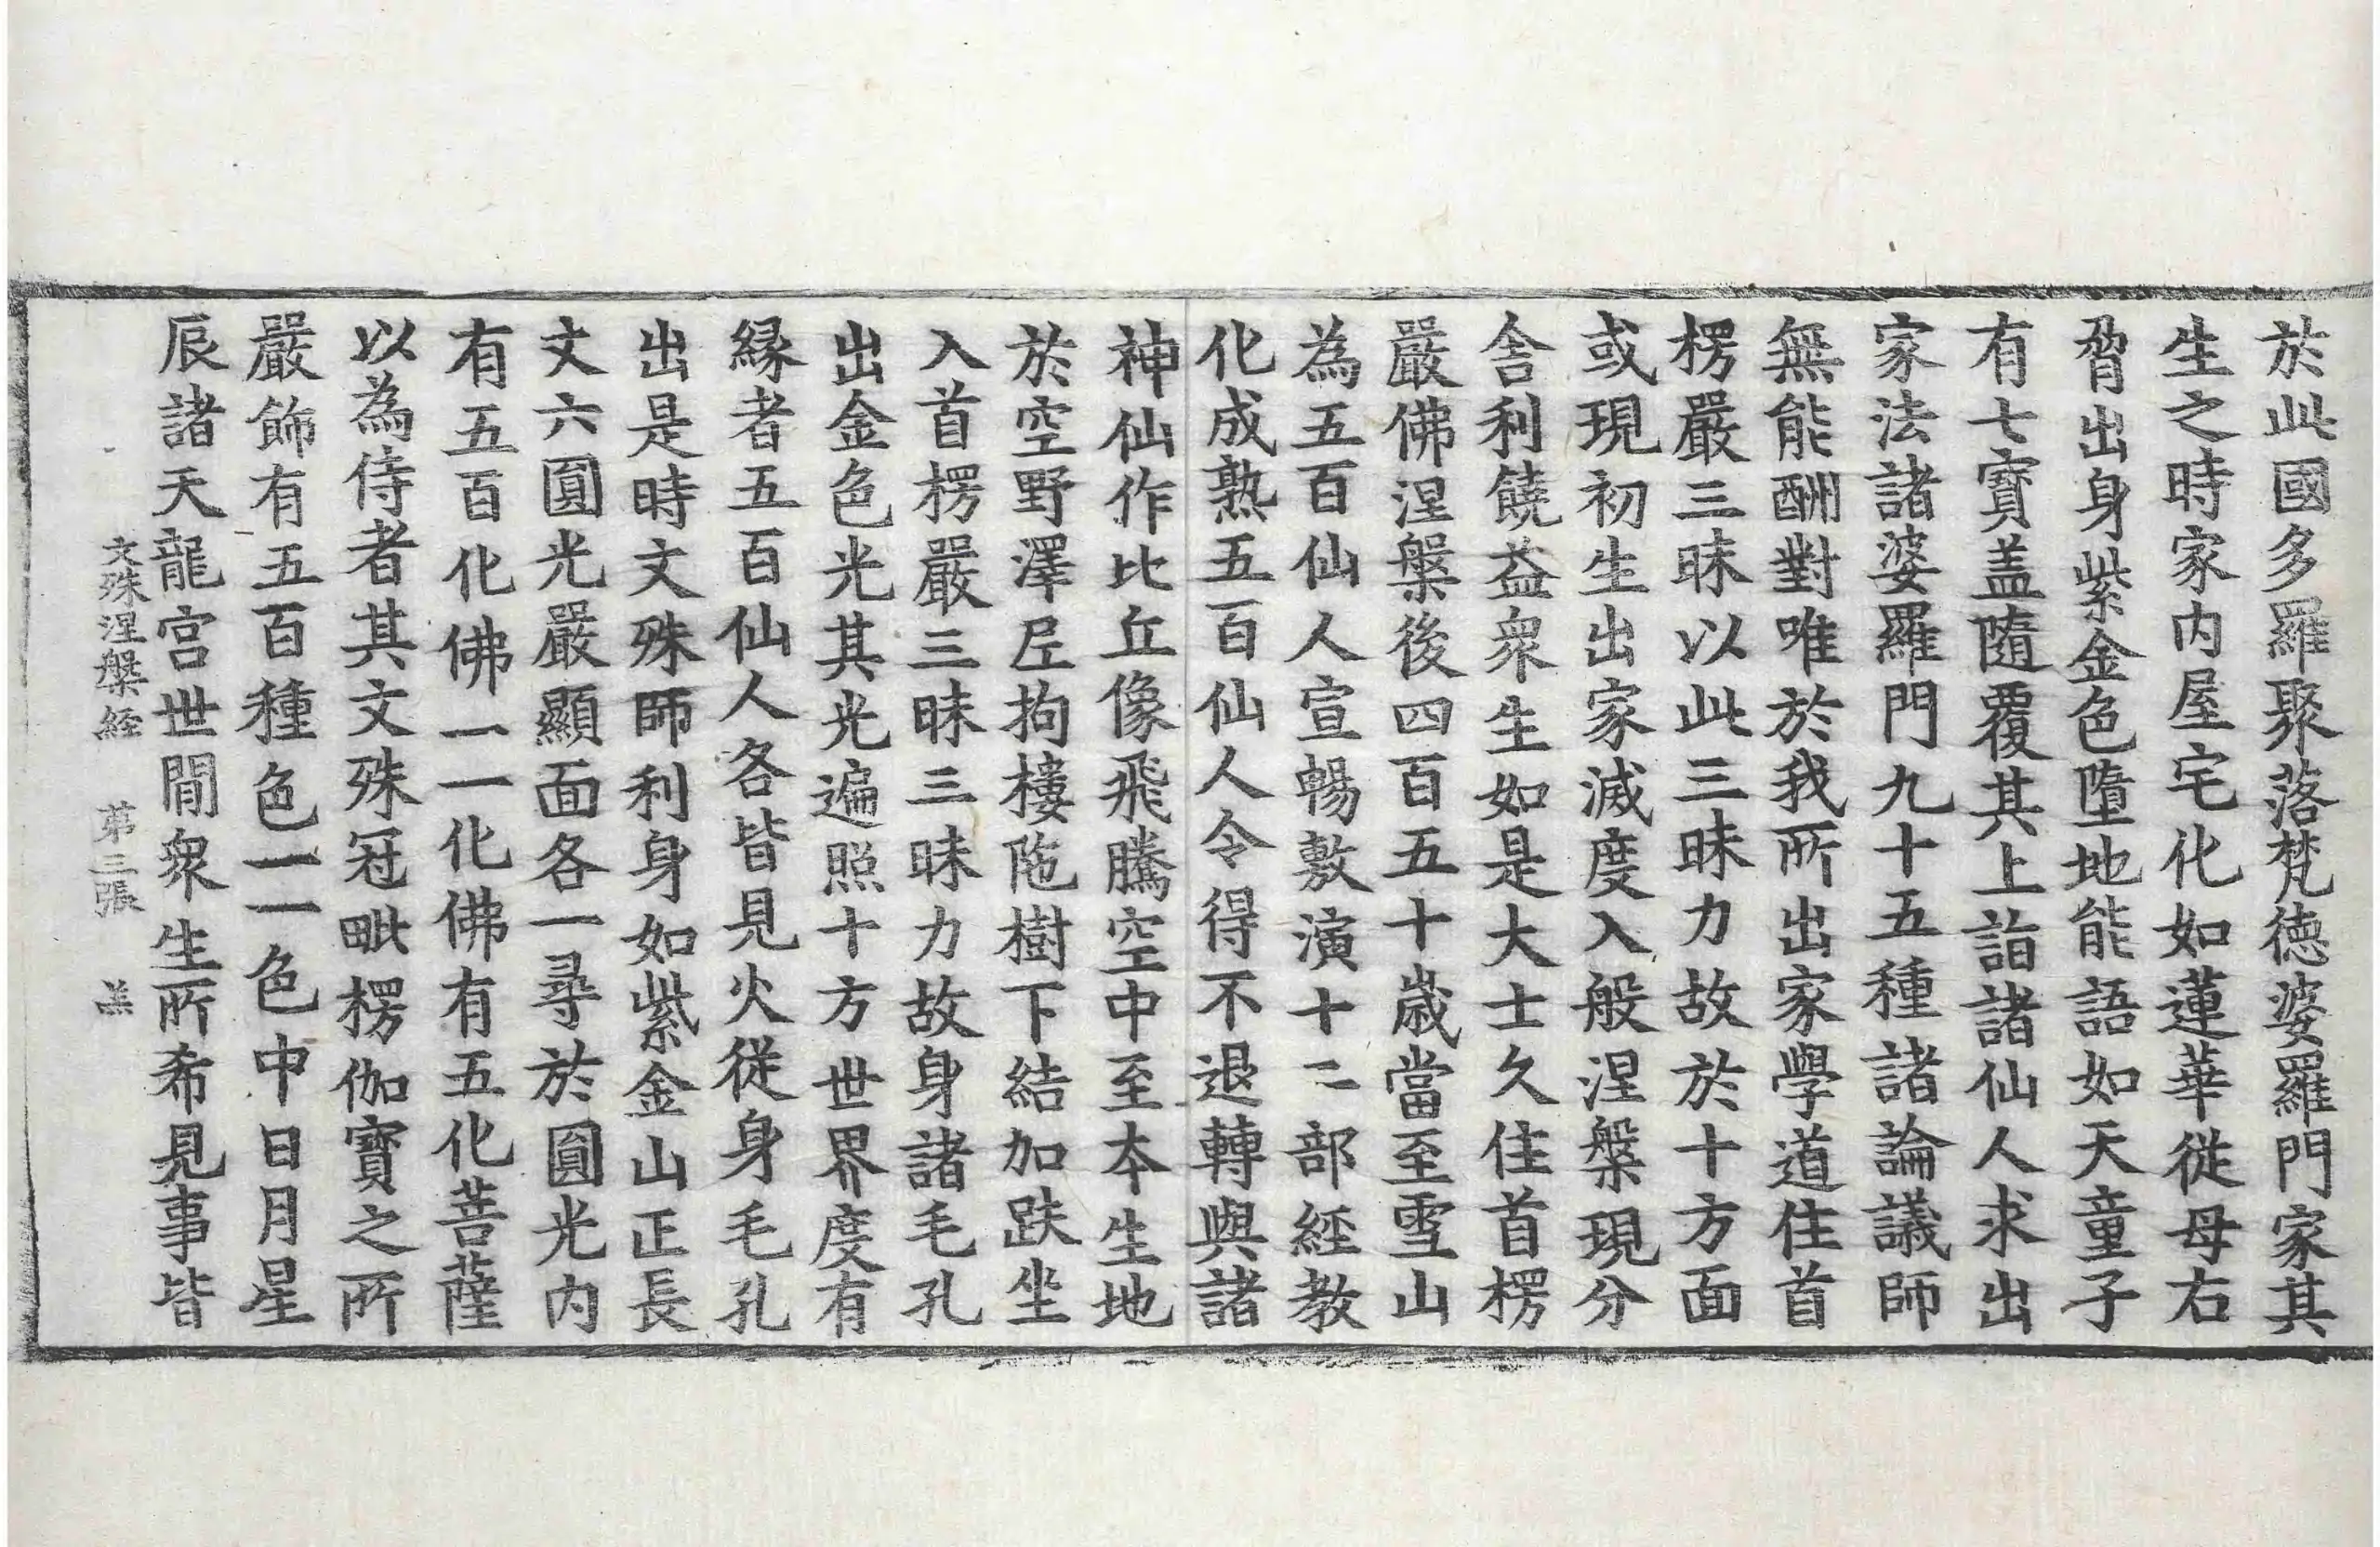 於此國多羅聚落梵德婆羅門家其
生之時家內屋宅化如蓮華從母右
脅出身紫金色墮地能語如天童子
有七寶盖隨覆其上詣諸仙人求出
家法諸婆羅門九十五種諸論議師
無能酬對唯於我所出家學道住首
楞嚴三昧以此三昧力故於十方面
或現初生出家滅度入般涅槃現分
舍利饒益衆生如是大士久住首楞
嚴佛涅槃後四百五十歲當至雪山
為五百仙人宣暢敷演十二部經教
化成熟五百仙人令得不退轉與諸
神仙作比丘像飛騰空中至本生地
於空野澤尼拘樓陁樹下結加趺坐
入首楞嚴三昧三昧力故身諸毛孔
出金色光其光遍照十方世界度有
緣者五百仙人各皆見火從身毛孔
出是時文殊師利身如紫金山正長
丈六圓光嚴顯面各一尋於圓光內
有五百化佛一一化佛有五化菩薩
以為侍者其文殊冠毗楞伽寶之所
嚴飾有五百種色一一色中日月星
辰諸天龍宮世間衆生所希見事皆
文殊涅槃經 第三張 羔